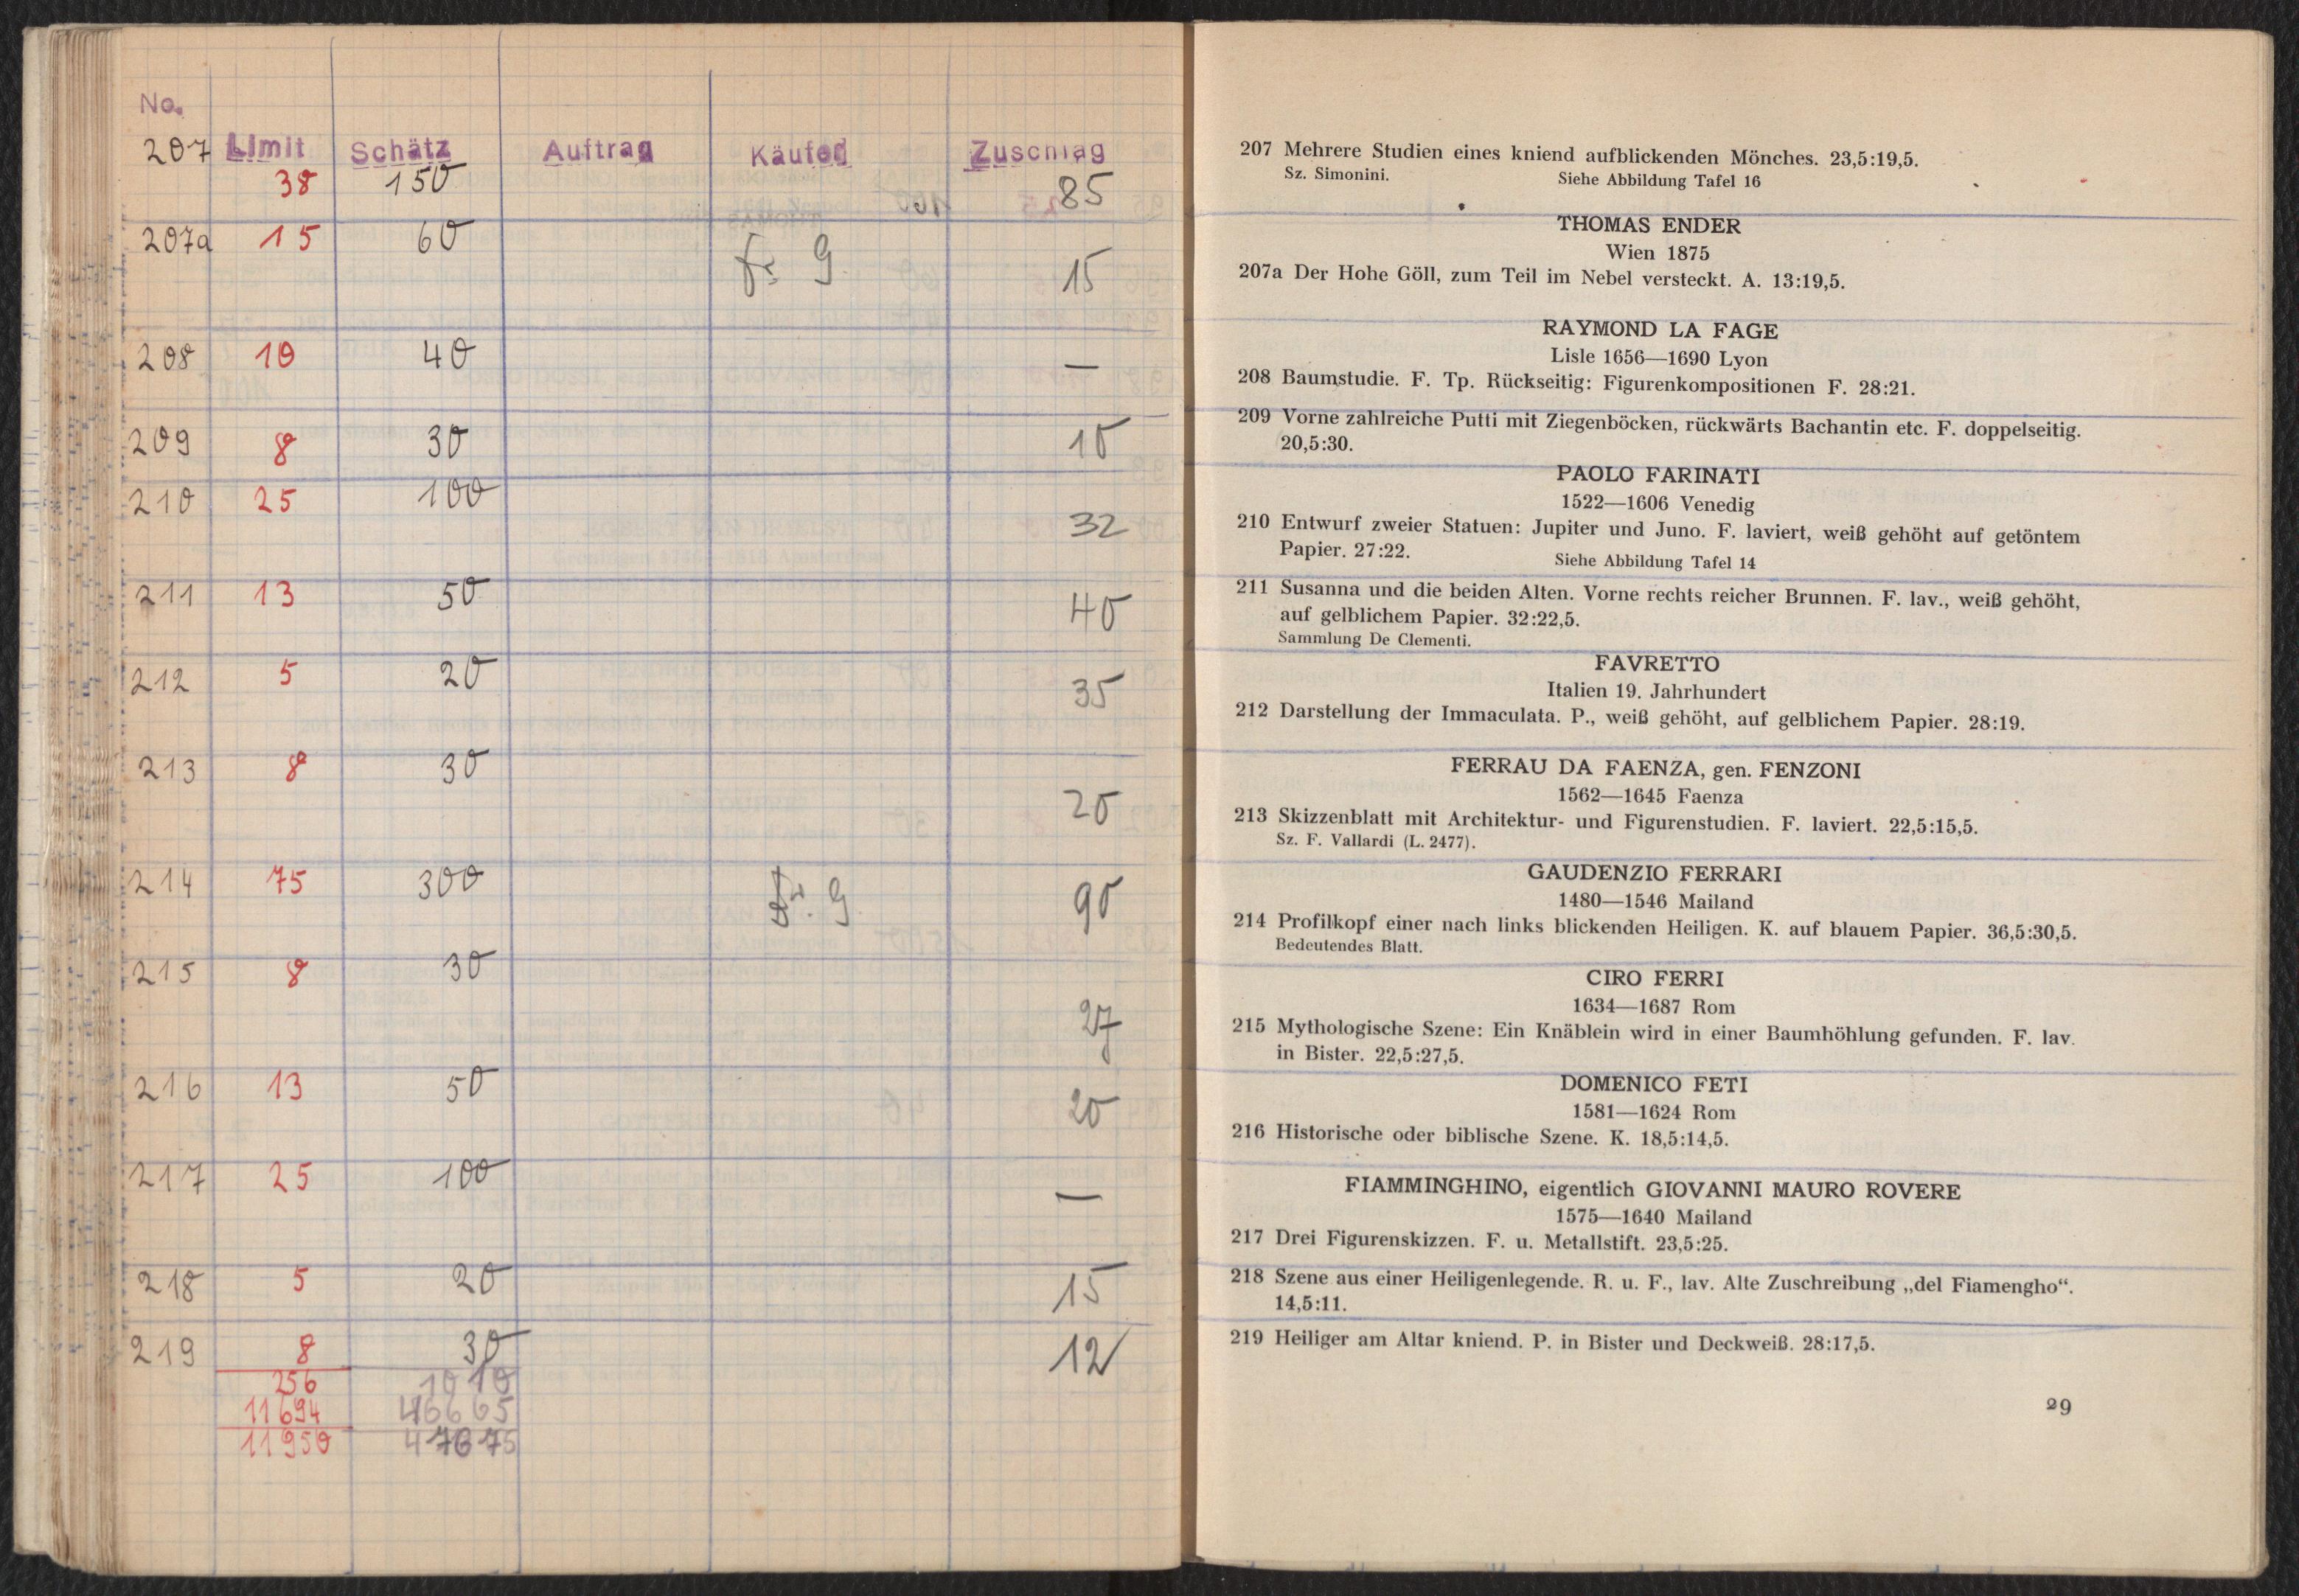 No.
207 Limit Schätz Auftrag Käufer Zuschlag
38 150 85
207a 15 60 fr. G. 15
208 10 40 —
209 8 30 10
210 25 100 32
211 13 50 40
212 5 20 35
213 8 30 20
214 75 300 G. 90
215 8 30 27
216 13 50 20
217 25 100 —
218 5 20 15
219 8 30 12
256 1010
11694 46665
11950 47675
207 Mehrere Studien eines kniend aufblickenden Mönches. 23,5:19,5.
Sz. Simonini. Siehe Abbildung Tafel 16
THOMAS ENDER
Wien 1875
207a Der Hohe Göll, zum Teil im Nebel versteckt. A. 13:19,5.
RAYMOND LA FAGE
Lisle 1656—1690 Lyon
208 Baumstudie. F. Tp. Rückseitig: Figurenkompositionen F. 28:21.
209 Vorne zahlreiche Putti mit Ziegenböcken, rückwärts Bachantin etc. F. doppelseitig.
20,5:30.
PAOLO FARINATI
1522—1606 Venedig
210 Entwurf zweier Statuen: Jupiter und Juno. F. laviert, weiß gehöht auf getöntem
Papier. 27:22. Siehe Abbildung Tafel 14
211 Susanna und die beiden Alten. Vorne rechts reicher Brunnen. F. lav., weiß gehöht,
auf gelblichem Papier. 32:22,5.
Sammlung De Clementi.
FAVRETTO
Italien 19. Jahrhundert
212 Darstellung der Immaculata. P., weiß gehöht, auf gelblichem Papier. 28:19.
FERRAU DA FAENZA, gen. FENZONI
1562—1645 Faenza
213 Skizzenblatt mit Architektur- und Figurenstudien. F. laviert. 22,5:15,5.
Sz. F. Vallardi (L. 2477).
GAUDENZIO FERRARI
1480—1546 Mailand
214 Profilkopf einer nach links blickenden Heiligen. K. auf blauem Papier. 36,5:30,5.
Bedeutendes Blatt.
CIRO FERRI
1634—1687 Rom
215 Mythologische Szene: Ein Knäblein wird in einer Baumhöhlung gefunden. F. lav.
in Bister. 22,5:27,5.
DOMENICO FETI
1581—1624 Rom
216 Historische oder biblische Szene. K. 18,5:14,5.
FIAMMINGHINO, eigentlich GIOVANNI MAURO ROVERE
1575—1640 Mailand
217 Drei Figurenskizzen. F. u. Metallstift. 23,5:25.
218 Szene aus einer Heiligenlegende. R. u. F., lav. Alte Zuschreibung „del Fiamengho“.
14,5:11.
219 Heiliger am Altar kniend. P. in Bister und Deckweiß. 28:17,5.
29